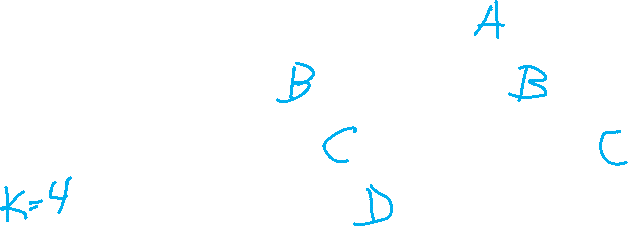 A
B B
C C
K=4 D